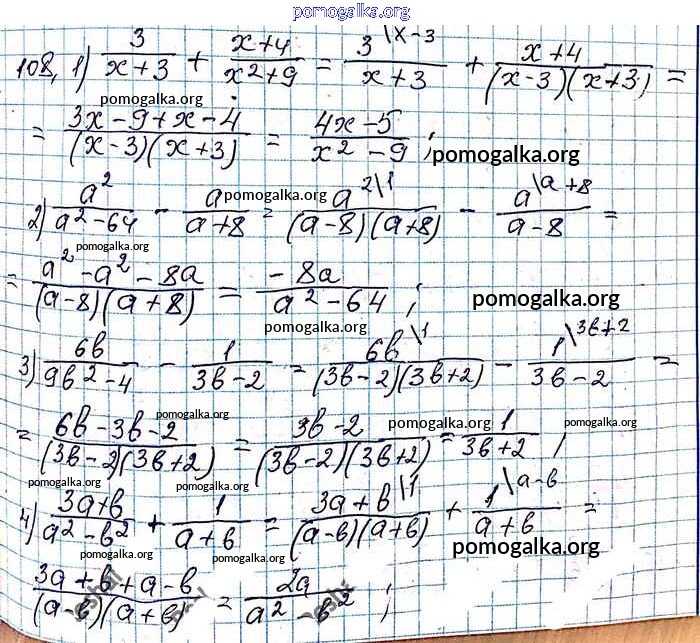 pomogalka.org
108, 1) 3/(x+3) + (x+4)/(x²+9) = 3\x-3/(x+3) + (x+4)/((x-3)(x+3)) =
pomogalka.org
= (3x-9+x-4)/((x-3)(x+3)) = (4x-5)/(x²-9) ; pomogalka.org
2) a²/(a²-64) - a/(a+8) = a²\1/((a-8)(a+8)) - a\a+8/(a-8) =
pomogalka.org
pomogalka.org
= (a²-a²-8a)/((a-8)(a+8)) = -8a/(a²-64) ; pomogalka.org
pomogalka.org
3) 6b/(9b²-4) - 1/(3b-2) = 6b\1/((3b-2)(3b+2)) - 1\3b+2/(3b-2) =
pomogalka.org pomogalka.org pomogalka.org
= (6b-3b-2)/((3b-2)(3b+2)) = (3b-2)/((3b-2)(3b+2)) = 1/(3b+2) ;
pomogalka.org pomogalka.org
4) (3a+b)/(a²-b²) + 1/(a+b) = (3a+b)\1/((a-b)(a+b)) + 1\a-b/(a+b) =
pomogalka.org pomogalka.org
(3a+b+a-b)/((a-b)(a+b)) = 2a/(a²-b²) ;